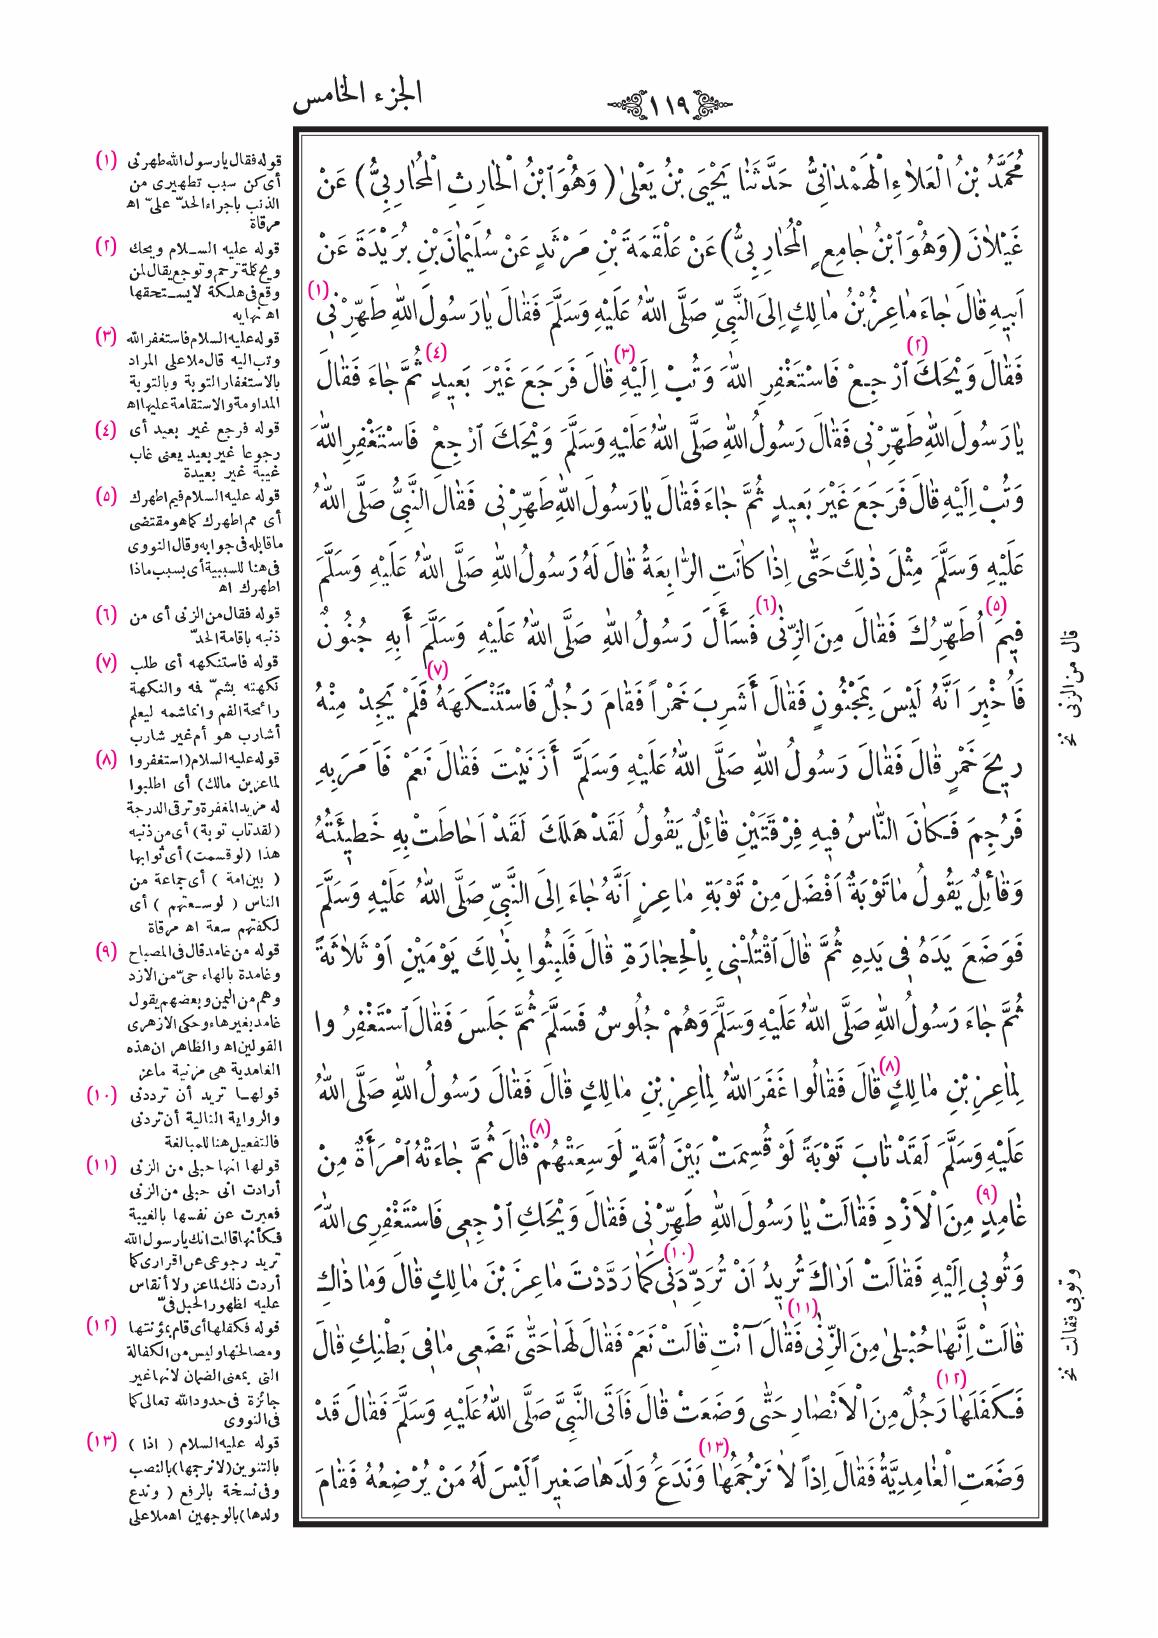 الجزء الخامس
١١٩
مُحَمَّدُ بْنُ الْعَلَاءِ الْهَمْدَانِىُّ حَدَّثَنَا يَحْيَى بْنُ يَعْلَى ( وَهُوَ ابْنُ الْحَارِثِ الْمُحَارِبِىُّ ) عَنْ
غَيْلَانَ (وَهُوَ ابْنُ جَامِعٍ الْمُحَارِبِىُّ) عَنْ عَلْقَمَةَ بْنِ مَرْثَدٍ عَنْ سُلَيْمَانَ بْنِ بُرَيْدَةَ عَنْ
اَبِيهِ قَالَ جَاءَ مَاعِزُ بْنُ مَالِكٍ اِلَى النَّبِىِّ صَلَّى اللهُ عَلَيْهِ وَسَلَّمَ فَقَالَ يَا رَسُولَ اللهِ طَهِّرْنِى (١)
فَقَالَ وَيْحَكَ (٢) ارْجِعْ فَاسْتَغْفِرِ اللهَ وَتُبْ اِلَيْهِ (٣) قَالَ فَرَجَعَ غَيْرَ بَعِيدٍ (٤) ثُمَّ جَاءَ فَقَالَ
يَا رَسُولَ اللهِ طَهِّرْنِى فَقَالَ رَسُولُ اللهِ صَلَّى اللهُ عَلَيْهِ وَسَلَّمَ وَيْحَكَ ارْجِعْ فَاسْتَغْفِرِ اللهَ
وَتُبْ اِلَيْهِ قَالَ فَرَجَعَ غَيْرَ بَعِيدٍ ثُمَّ جَاءَ فَقَالَ يَا رَسُولَ اللهِ طَهِّرْنِى فَقَالَ النَّبِىُّ صَلَّى اللهُ
عَلَيْهِ وَسَلَّمَ مِثْلَ ذٰلِكَ حَتَّى اِذَا كَانَتِ الرَّابِعَةُ قَالَ لَهُ رَسُولُ اللهِ صَلَّى اللهُ عَلَيْهِ وَسَلَّمَ
فِيمَ (٥) اُطَهِّرُكَ فَقَالَ مِنَ الزِّنَى (٦) فَسَأَلَ رَسُولُ اللهِ صَلَّى اللهُ عَلَيْهِ وَسَلَّمَ أَبِهِ جُنُونٌ
فَاُخْبِرَ اَنَّهُ لَيْسَ بِمَجْنُونٍ فَقَالَ أَشَرِبَ خَمْراً فَقَامَ رَجُلٌ فَاسْتَنْكَهَهُ (٧) فَلَمْ يَجِدْ مِنْهُ
رِيحَ خَمْرٍ قَالَ فَقَالَ رَسُولُ اللهِ صَلَّى اللهُ عَلَيْهِ وَسَلَّمَ أَزَنَيْتَ فَقَالَ نَعَمْ فَاَمَرَ بِهِ
فَرُجِمَ فَكَانَ النَّاسُ فِيهِ فِرْقَتَيْنِ قَائِلٌ يَقُولُ لَقَدْ هَلَكَ لَقَدْ اَحَاطَتْ بِهِ خَطِيئَتُهُ
وَقَائِلٌ يَقُولُ مَا تَوْبَةٌ اَفْضَلَ مِنْ تَوْبَةِ مَاعِزٍ اَنَّهُ جَاءَ اِلَى النَّبِىِّ صَلَّى اللهُ عَلَيْهِ وَسَلَّمَ
فَوَضَعَ يَدَهُ فِى يَدِهِ ثُمَّ قَالَ اقْتُلْنِى بِالْحِجَارَةِ قَالَ فَلَبِثُوا بِذٰلِكَ يَوْمَيْنِ اَوْ ثَلَاثَةً
ثُمَّ جَاءَ رَسُولُ اللهِ صَلَّى اللهُ عَلَيْهِ وَسَلَّمَ وَهُمْ جُلُوسٌ فَسَلَّمَ ثُمَّ جَلَسَ فَقَالَ اسْتَغْفِرُوا
لِمَاعِزِ بْنِ مَالِكٍ (٨) قَالَ فَقَالُوا غَفَرَ اللهُ لِمَاعِزِ بْنِ مَالِكٍ قَالَ فَقَالَ رَسُولُ اللهِ صَلَّى اللهُ
عَلَيْهِ وَسَلَّمَ لَقَدْ تَابَ تَوْبَةً لَوْ قُسِمَتْ بَيْنَ اُمَّةٍ لَوَسِعَتْهُمْ (٨) قَالَ ثُمَّ جَاءَتْهُ امْرَأَةٌ مِنْ
غَامِدٍ (٩) مِنَ الْاَزْدِ فَقَالَتْ يَا رَسُولَ اللهِ طَهِّرْنِى فَقَالَ وَيْحَكِ ارْجِعِى فَاسْتَغْفِرِى اللهَ
وَتُوبِى اِلَيْهِ فَقَالَتْ اَرَاكَ تُرِيدُ اَنْ تُرَدِّدَنِى (١٠) كَمَا رَدَّدْتَ مَاعِزَ بْنَ مَالِكٍ قَالَ وَمَا ذَاكِ
قَالَتْ اِنَّهَا حُبْلَى مِنَ الزِّنَى (١١) فَقَالَ آنْتِ قَالَتْ نَعَمْ فَقَالَ لَهَا حَتَّى تَضَعِى مَا فِى بَطْنِكِ قَالَ
فَكَفَلَهَا (١٢) رَجُلٌ مِنَ الْاَنْصَارِ حَتَّى وَضَعَتْ قَالَ فَاَتَى النَّبِىَّ صَلَّى اللهُ عَلَيْهِ وَسَلَّمَ فَقَالَ قَدْ
وَضَعَتِ الْغَامِدِيَّةُ فَقَالَ اِذاً لَا نَرْجُمَهَا (١٣) وَنَدَعُ وَلَدَهَا صَغِيراً لَيْسَ لَهُ مَنْ يُرْضِعُهُ فَقَامَ
(١) قوله فقال يا رسول الله طهرنى
أى كن سبب تطهيرى من
الذنب باجراء الحدّ علىّ اه
مرقاة
(٢) قوله عليه السلام ويحك
ويح كلمة ترحم وتوجع يقال لمن
وقع فى هلكة لا يستحقها
اه نهايه
(٣) قوله عليه السلام فاستغفر الله
وتب اليه قال ملا على المراد
بالاستغفار التوبة وبالتوبة
المداومة والاستقامة عليها اه
(٤) قوله فرجع غير بعيد أى
رجوعا غير بعيد يعنى غاب
غيبة غير بعيدة
(٥) قوله عليه السلام فيم اطهرك
أى مم اطهرك كما هو مقتضى
ما قابله فى جوابه وقال النووى
فى هنا للسببية أى بسبب ماذا
اطهرك اه
(٦) قوله فقال من الزنى أى من
ذنبه باقامة الحدّ
(٧) قوله فاستنكهه أى طلب
نكهته بشمّ فه والنكهة
رائحة الفم وانما شمه ليعلم
أشارب هو أم غير شارب
(٨) قوله عليه السلام (استغفروا
لماعز بن مالك) أى اطلبوا
له مزيد المغفرة وترقى الدرجة
(لقد تاب توبة) أى من ذنبه
هذا (لو قسمت) أى ثوابها
( بين امة ) أى جماعة من
الناس ( لوسعتهم ) أى
لكفتهم سعة اه مرقاة
(٩) قوله من غامد قال فى المصباح
وغامدة بالهاء حىّ من الازد
وهم من اليمن وبعضهم يقول
غامد بغير هاء وحكى الازهرى
القولين اه والظاهر ان هذه
الغامدية هى مزنية ماعز
(١٠) قولها تريد أن ترددنى
والرواية التالية أن تردنى
فالتفعيل هنا للمبالغة
(١١) قولها انها حبلى من الزنى
أرادت انى حبلى من الزنى
فعبرت عن نفسها بالغيبة
فكأنها قالت انك يا رسول الله
تريد رجوعى عن اقرارى كما
أردت ذلك لماعز ولا أنقاس
عليه لظهور الحبل فىّ
(١٢) قوله فكفلها أى قام بمؤنتها
ومصالحها وليس من الكفالة
التى بمعنى الضمان لانها غير
جائزة فى حدود الله تعالى كما
فى النووى
(١٣) قوله عليه السلام ( اذا )
بالتنوين (لا نرجمها) بالنصب
وفى نسخة بالرفع ( وندع
ولدها) بالوجهين اه ملا على
قال من الزنى نخ
وتوبى فقالت نخ